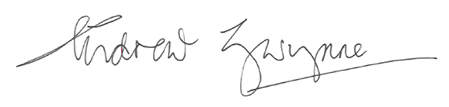 Andrew Gwynne